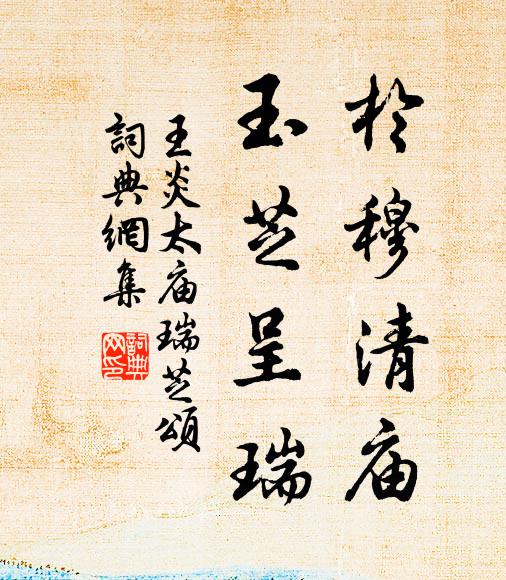 於穆清庙
玉芝呈瑞
王炎太庙瑞芝頌
詞典網集
詞典
网印